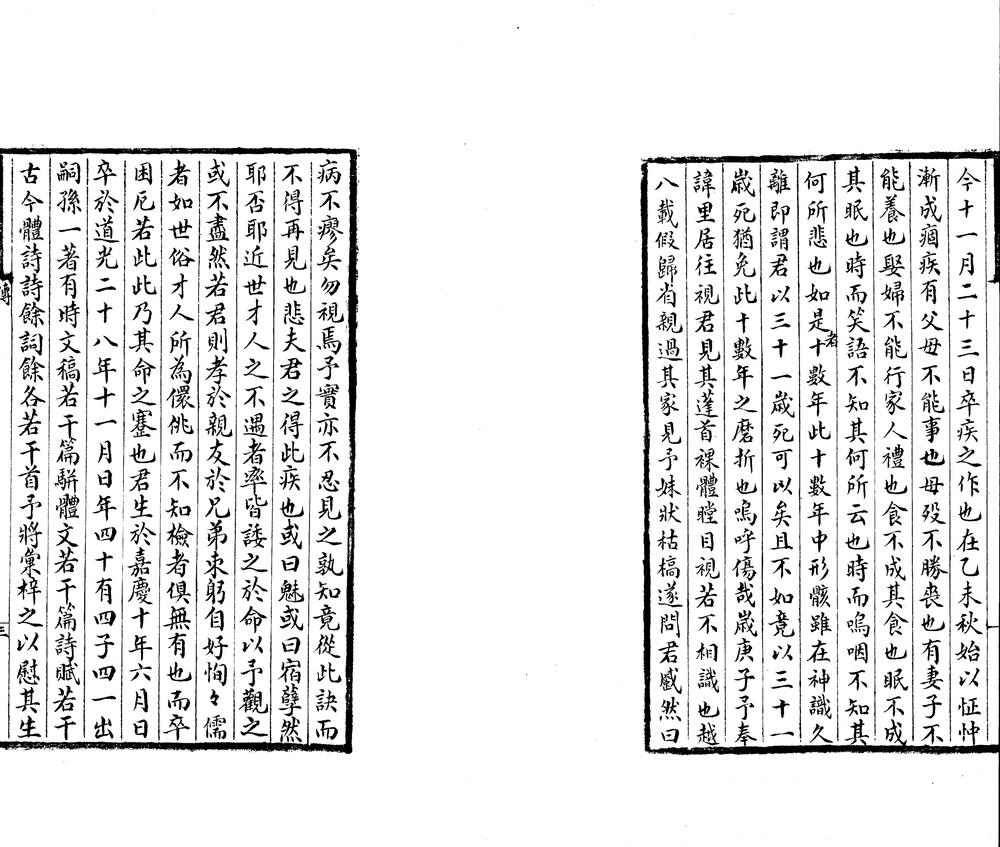 今十一月二十三日卒疾之作也在乙未秋始以怔忡
漸成痼疾有父母不能事也母歿不勝喪也有妻子不
能養也娶婦不能行家人禮也食不成其食也眠不成
其眠也時而笑語不知其何所云也時而嗚咽不知其
何所悲也如是者十數年此十數年中形骸雖在神識久
離即謂君以三十一歲死可以矣且不如竟以三十一
歲死猶免此十數年之磨折也嗚呼傷哉歲庚子予奉
諱里居往視君見其蓬首裸體瞠目視若不相識也越
八載假歸省親過其家見予妹狀枯槁遂問君慼然曰
病不瘳矣勿視焉予實亦不忍見之孰知竟從此訣而
不得再見也悲夫君之得此疾也或曰魅或曰宿孽然
耶否耶近世才人之不遇者率皆諉之於命以予觀之
或不盡然若君則孝於親友於兄弟束躬自好恂々儒
者如世俗才人所為儇佻而不知檢者俱無有也而卒
困戹若此此乃其命之蹇也君生於嘉慶十年六月日
卒於道光二十八年十一月日年四十有四子四一出
嗣孫一著有時文稿若干篇駢體文若干篇詩賦若干
古今體詩詩餘詞餘各若干首予將彙梓之以慰其生
傳
三